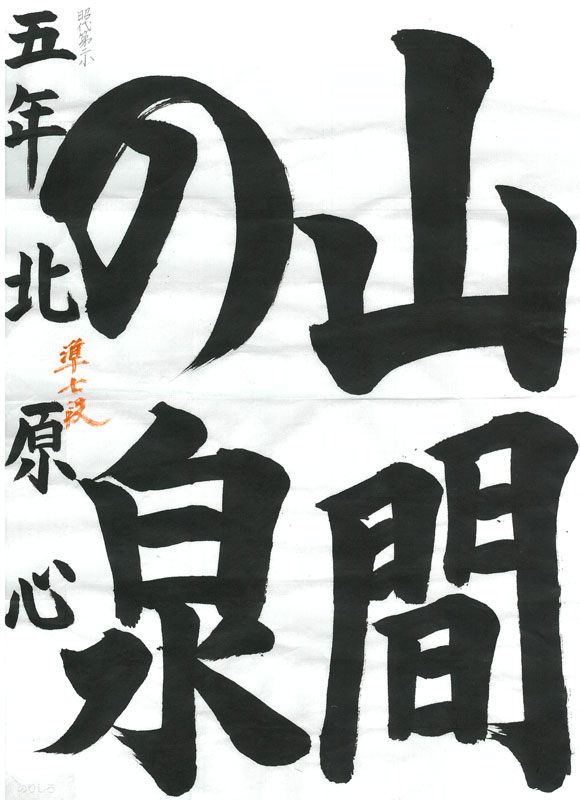 山間
の泉
五年 北原 心
準七段
昭代第一小
のりしろ